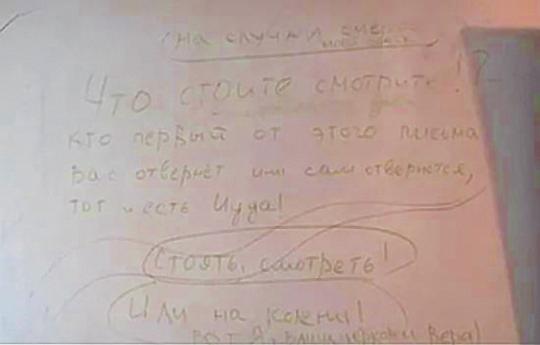 на случай смер
Что стоите смотрите!?
кто первый от этого письма
вас отвернёт или сам отвернётся,
тот и есть Иуда!
Стоять, смотреть!
Или на колени!
вот я, ваша Вера!